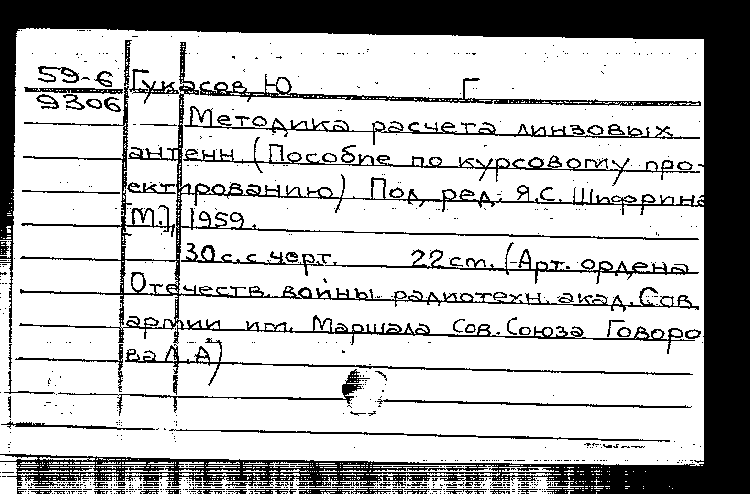 59-6 Гукасов, Ю Г
9306
Методика расчета линзовых
антенн (Пособие по курсовому про-
ектированию) Под ред. Я.С. Шифрина
[М.], 1959.
30 с. с черт. 22 cm. (Арт. ордена
Отечеств. войны радиотехн. акад. Сов.
армии им. Маршала Сов. Союза Говоро
ва Л.А)